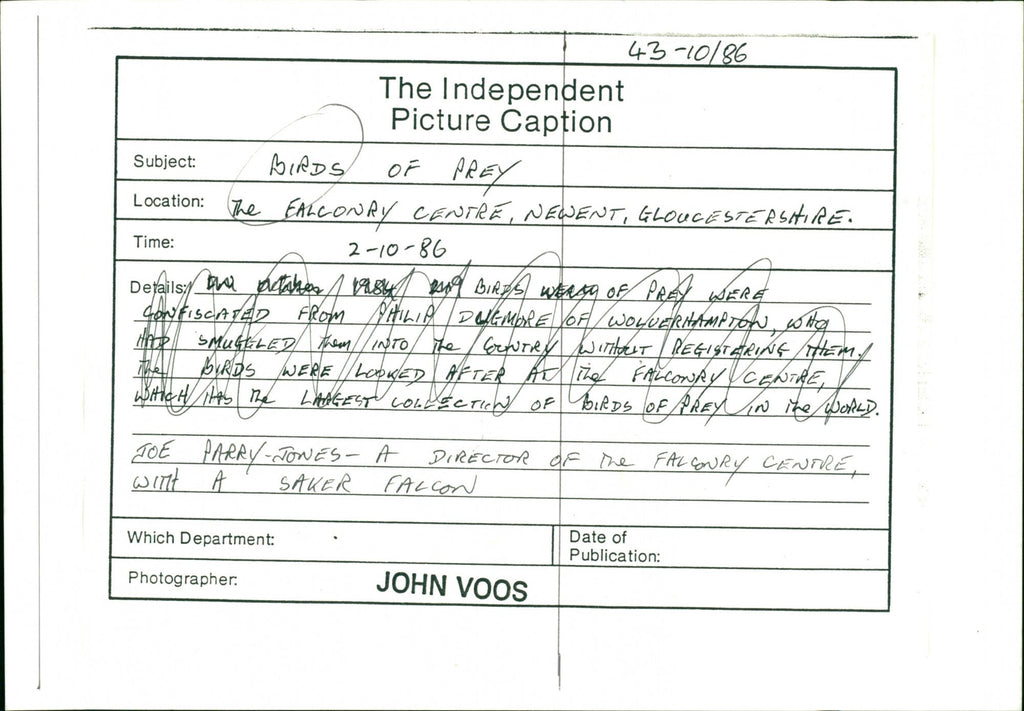 43-10/86
The Independent
Picture Caption
Subject: BIRDS OF PREY
Location: The FALCONRY CENTRE, NEWENT, GLOUCESTERSHIRE.
Time: 2-10-86
Details: 1984 BIRDS OF PREY WERE
CONFISCATED FROM PHILIP DUGMORE OF WOLVERHAMPTON, WHO
HAD SMUGGLED Them INTO The COUNTRY WITHOUT REGISTERING THEM.
The BIRDS WERE LOOKED AFTER AT The FALCONRY CENTRE,
WHICH HAS The LARGEST COLLECTION OF BIRDS OF PREY IN The WORLD.
JOE PARRY-JONES - A DIRECTOR OF The FALCONRY CENTRE,
WITH A SAKER FALCON
Which Department:
Date of
Publication:
Photographer: JOHN VOOS